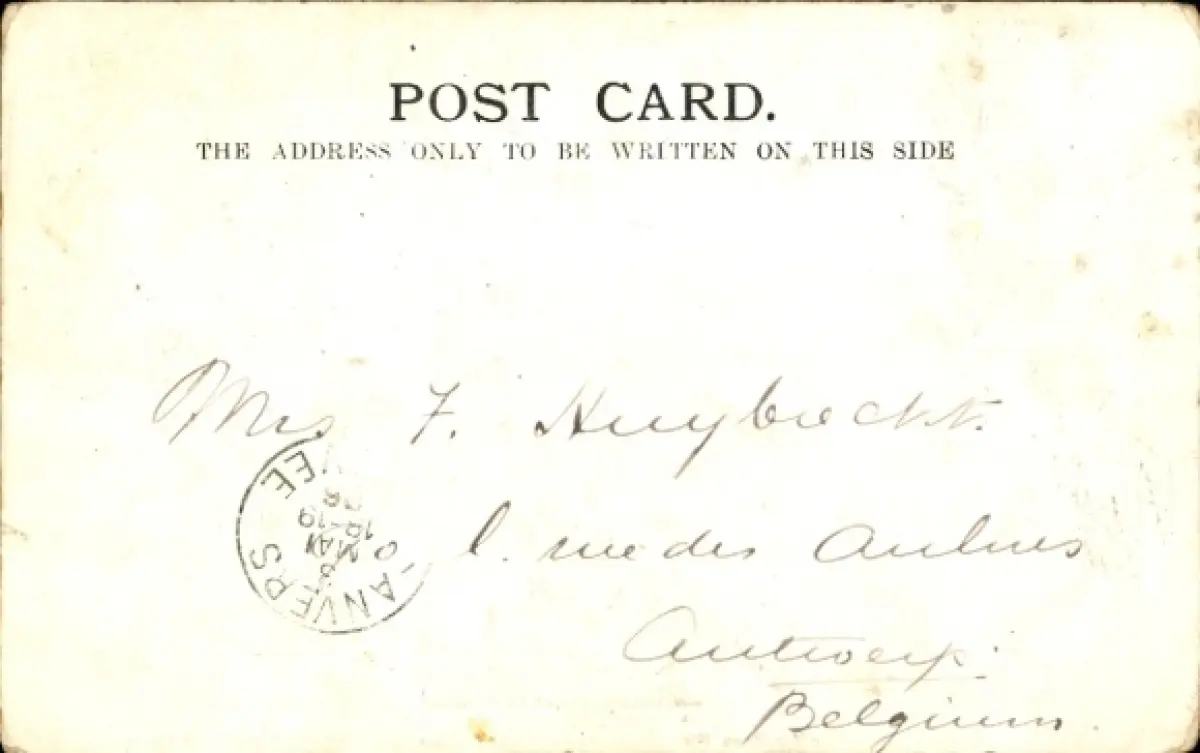 POST CARD.
THE ADDRESS ONLY TO BE WRITTEN ON THIS SIDE
Mrs F. Huybrecht.
rue des
Antwerp.
Belgium.
ANVERS
MAI
18-19